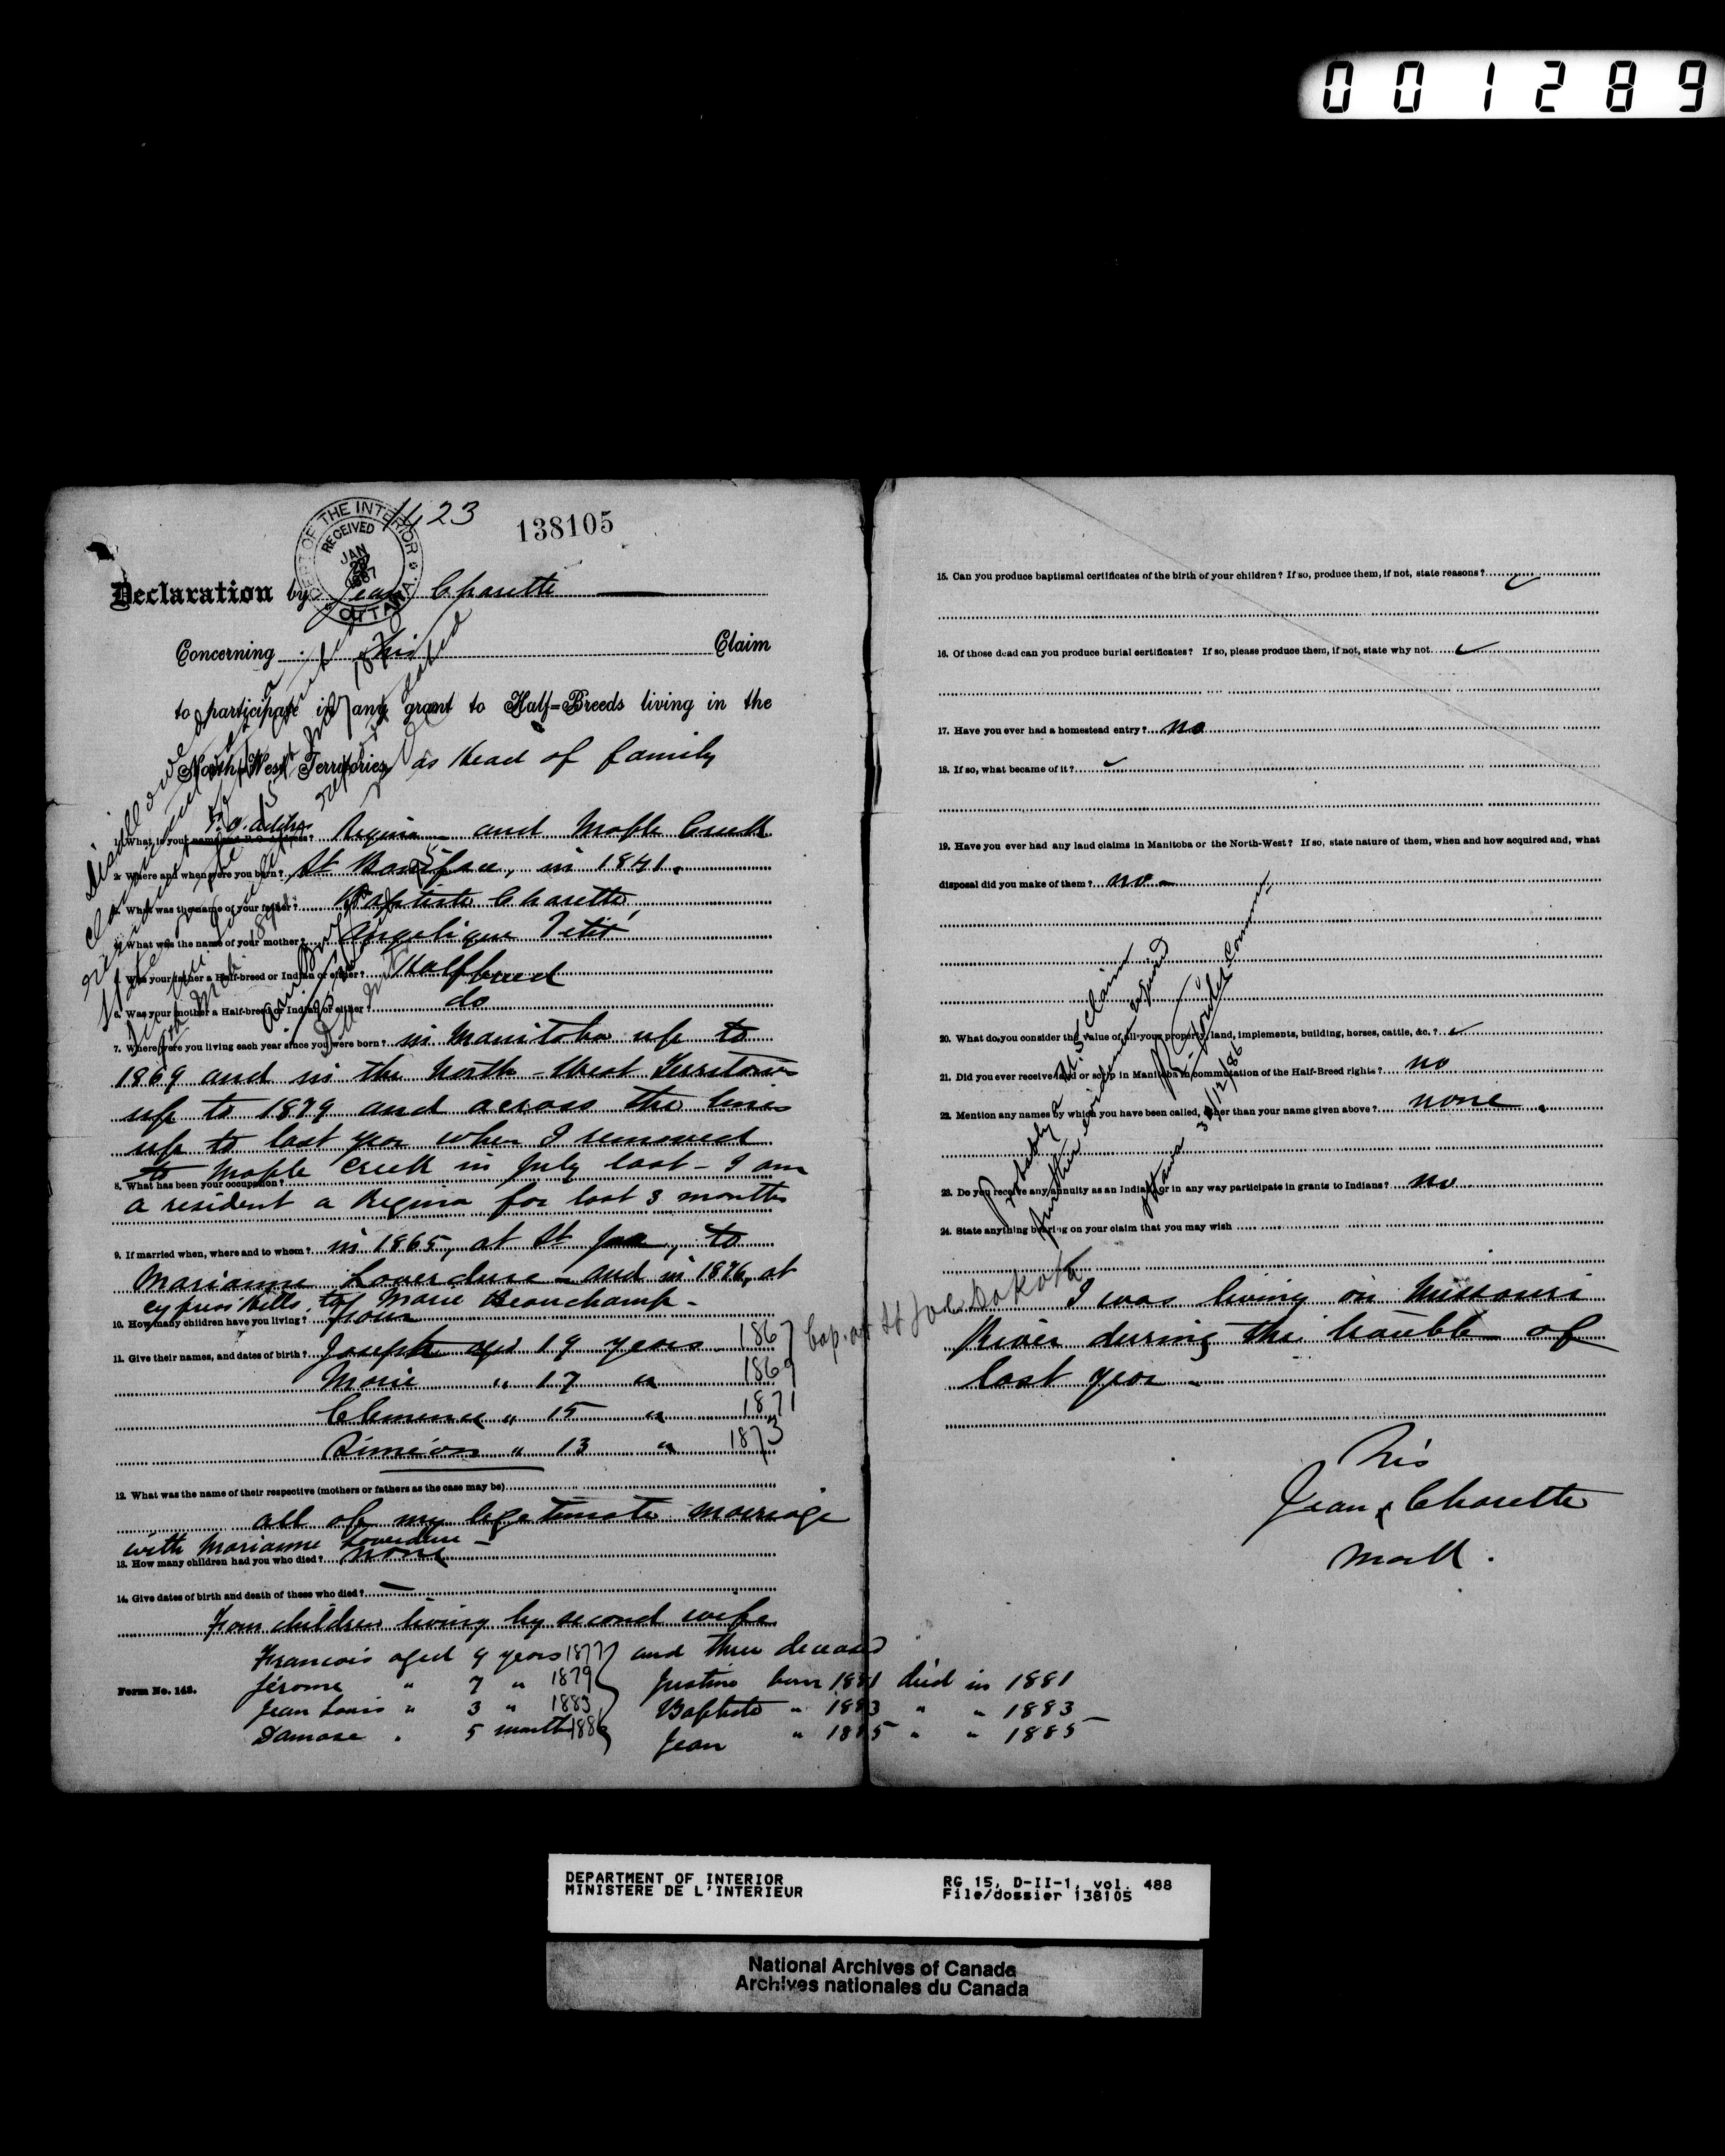 001289
1423
138105
DEPT OF THE INTERIOR
RECEIVED
JAN
1887
OTTAWA.
Declaration by Jean Charette
Concerning his Claim
to participate in any grant to Half-Breeds living in the
North-West Territories as Head of family
P.O. address
1. What is your name and P. O. Address? Regina - and Maple Creek
2. Where and when were you born? St Boniface, in 1841.
3. What was the name of your father? Baptiste Charette
4. What was the name of your mother? Angelique Petit
5. Was your father a Half-breed or Indian or either? Halfbreed
6. Was your mother a Half-breed or Indian or either? do
7. Where were you living each year since you were born? in Manitoba up to
1869 and in the North-West Territories
up to 1879 and across the lines
up to last year when I removed
to Maple Creek in July last - I am
8. What has been your occupation?
a resident a Regina for last 3 months
9. If married when, where and to whom? in 1865, at St Joe, to
Marianne Laverdure - and in 1876, at
cypress Hills, to Marie Beauchamp -
10. How many children have you living? four
11. Give their names, and dates of birth? Joseph age 19 years 1867
Marie " 17 " 1869
Clemence " 15 " 1871
Simeon " 13 " 1873
bap. at St Joe Dakota
12. What was the name of their respective (mothers or fathers as the case may be)
all of my legetimate marriage
with Marianne Laverdure -
13. How many children had you who died? none
14. Give dates of birth and death of these who died? —
Four children living by second wife
Francois aged 9 years 1877 and three deceased
Jérome " 7 " 1879 Justine born 1881 died in 1881
Jean Louis " 3 " 1883 Baptiste " 1883 " " 1883
Damase . 5 month 1886 Jean " 1885 " " 1885
Form No. 143.
15. Can you produce baptismal certificates of the birth of your children? If so, produce them, if not, state reasons?
16. Of those dead can you produce burial certificates? If so, please produce them, if not, state why not
17. Have you ever had a homestead entry? no
18. If so, what became of it?
19. Have you ever had any land claims in Manitoba or the North-West? If so, state nature of them, when and how acquired and, what
disposal did you make of them? no -
20. What do you consider the value of all your property, land, implements, building, horses, cattle, &c.?
21. Did you ever receive land or scrip in Manitoba in commutation of the Half-Breed rights? no
22. Mention any names by which you have been called, other than your name given above? none.
23. Do you receive any annuity as an Indian, or in any way participate in grants to Indians? no
24. State anything bearing on your claim that you may wish
I was living on Missouri
River during the trouble of
last year -
Probably a U.S. claim
further evidence required
Ottawa 31/12/86
his
Jean x Charette
mark.
DEPARTMENT OF INTERIOR
MINISTERE DE L'INTERIEUR
RG 15, D-II-1, vol. 488
File/dossier 138105
National Archives of Canada
Archives nationales du Canada